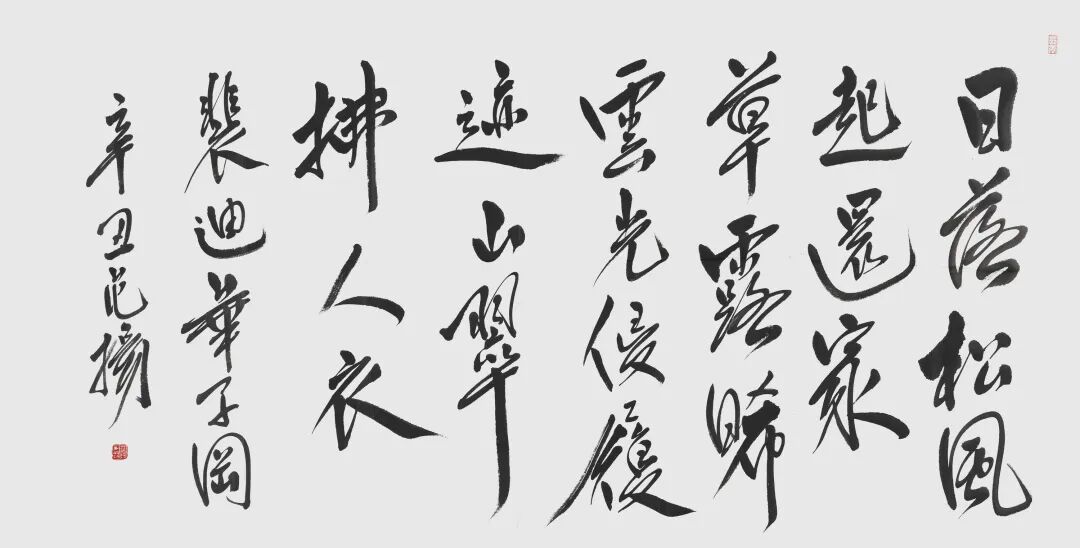 日落松風
起還家
草露晞
雲光侵履
迹山翠
拂人衣
裴迪華子岡
辛丑范揚